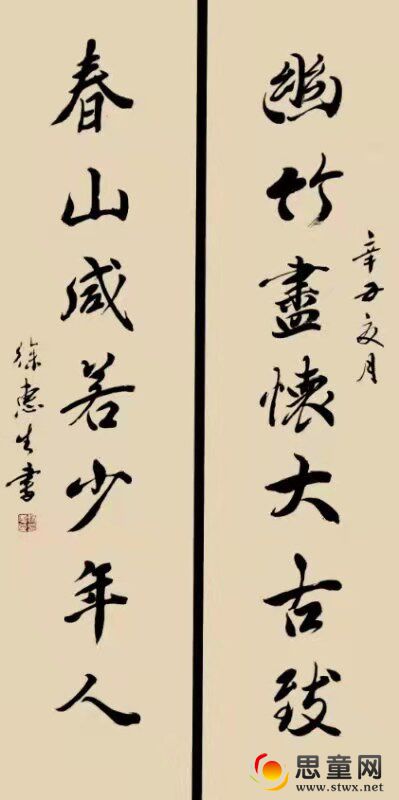 辛丑夏月
幽竹盡懷大古致
春山咸若少年人
徐惠生書
思童网
www.stwx.net